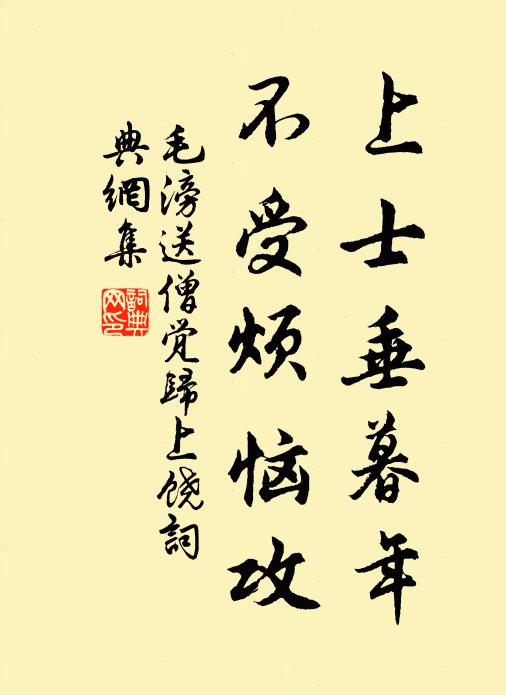 上士垂暮年
不受烦恼攻
毛滂送僧觉歸上饶詞
典網集
詞典
网印